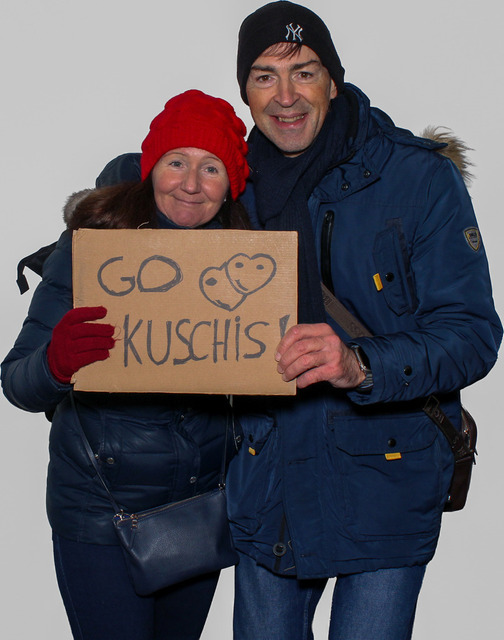 NY
GO
KUSCHiS!